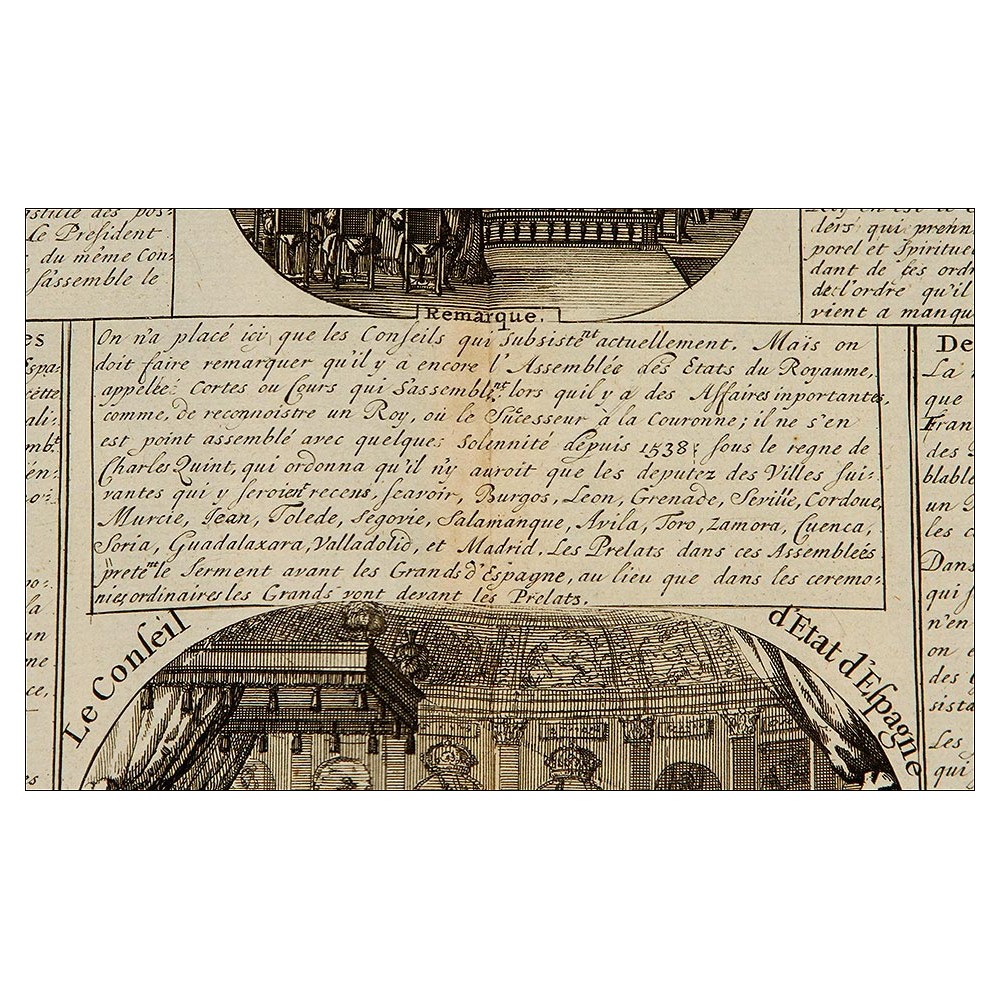 des pos-
Le President
du même Con-
s'assemble le
ders qui prenn
porel et Spirituel
dant de ses ordr
de l'ordre qu'il
vient a manqu
Remarque.
On n'a placé ici, que les Conseils qui subsistent actuellement. Mais on
doit faire remarquer qu'il y a encore l'Assemblée des Etats du Royaume,
appelée: Cortes ou Cours qui s'assemblent lors quil y a des Affaires inportantes,
comme, de reconnoistre un Roy, ou le Sucesseur à la Couronne; il ne s'en
est point assemblé avec quelque solennité depuis 1538; sous le regne de
Charles Quint, qui ordonna qu'il n'y auroit que les deputez des Villes sui-
vantes qui y seroient recens, scavoir, Burgos, Leon, Grenade, Seville, Cordoue,
Murcie, Jean, Tolede, Segovie, Salamanque, Avila, Toro, Zamora, Cuenca,
Soria, Guadalaxara, Valladolid, et Madrid. Les Prelats dans ces Assembleés
pretent le serment avant les Grands d'Espagne, au lieu que dans les ceremo-
nies ordinaires les Grands vont devant les Prelats.
Le Conseil d'Etat d'Espagne
es
Espa-
cette
ali-
mbt
en-
la
un
ne
ce,
es
De
La
que
Fran
des
blable
un
les c
Dans
qui s
n'en
on e
des
sista
Les
qui